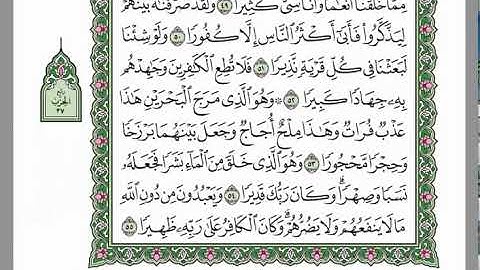 مِّمَّا خَلَقْنَا أَنْعَٰمًا وَأَنَاسِيَّ كَثِيرًا ٤٩ وَلَقَدْ صَرَّفْنَٰهُ بَيْنَهُمْ
لِيَذَّكَّرُوا۟ فَأَبَىٰٓ أَكْثَرُ ٱلنَّاسِ إِلَّا كُفُورًا ٥٠ وَلَوْ شِئْنَا
لَبَعَثْنَا فِى كُلِّ قَرْيَةٍ نَّذِيرًا ٥١ فَلَا تُطِعِ ٱلْكَٰفِرِينَ وَجَٰهِدْهُم
بِهِۦ جِهَادًا كَبِيرًا ٥٢ ۞ وَهُوَ ٱلَّذِى مَرَجَ ٱلْبَحْرَيْنِ هَٰذَا
عَذْبٌ فُرَاتٌ وَهَٰذَا مِلْحٌ أُجَاجٌ وَجَعَلَ بَيْنَهُمَا بَرْزَخًا
وَحِجْرًا مَّحْجُورًا ٥٣ وَهُوَ ٱلَّذِى خَلَقَ مِنَ ٱلْمَآءِ بَشَرًا فَجَعَلَهُۥ
نَسَبًا وَصِهْرًا ۗ وَكَانَ رَبُّكَ قَدِيرًا ٥٤ وَيَعْبُدُونَ مِن دُونِ ٱللَّهِ
مَا لَا يَنفَعُهُمْ وَلَا يَضُرُّهُمْ ۗ وَكَانَ ٱلْكَافِرُ عَلَىٰ رَبِّهِۦ ظَهِيرًا ٥٥
ربع
الحزب
٣٧